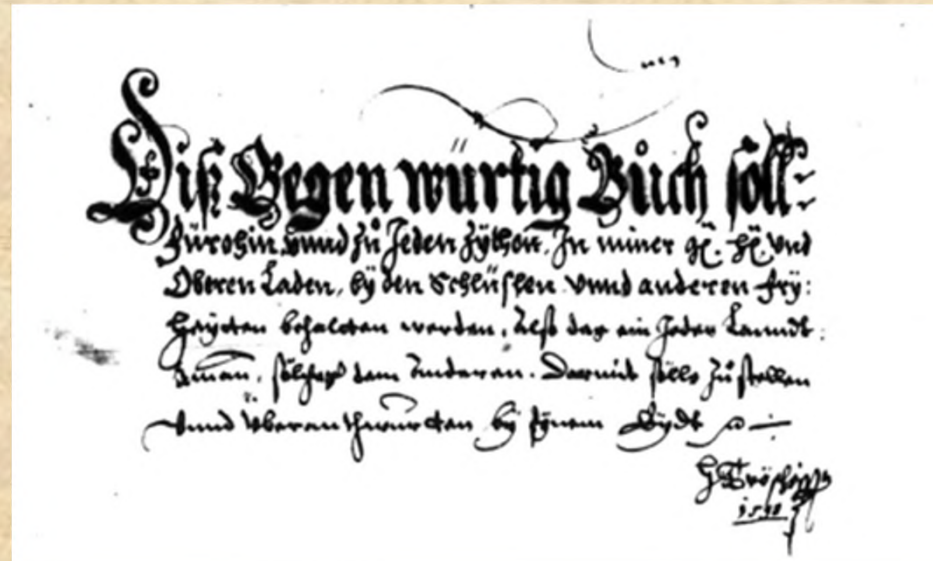 Diß Gegen würtig Büch söll-
fürohin, vnnd zů Jeden Zythen, In miner gn. Hn. vnd
Oberen Laden, bÿ den Schlüßlen vnnd anderen frÿ:
heytten behalten werden, Alß das ein Jeder Lanndt:
aman, söliches dem Anderen. Darmit sölle zů stellen
vnnd überanthwurtten bÿ sÿnem Eÿdt
1598